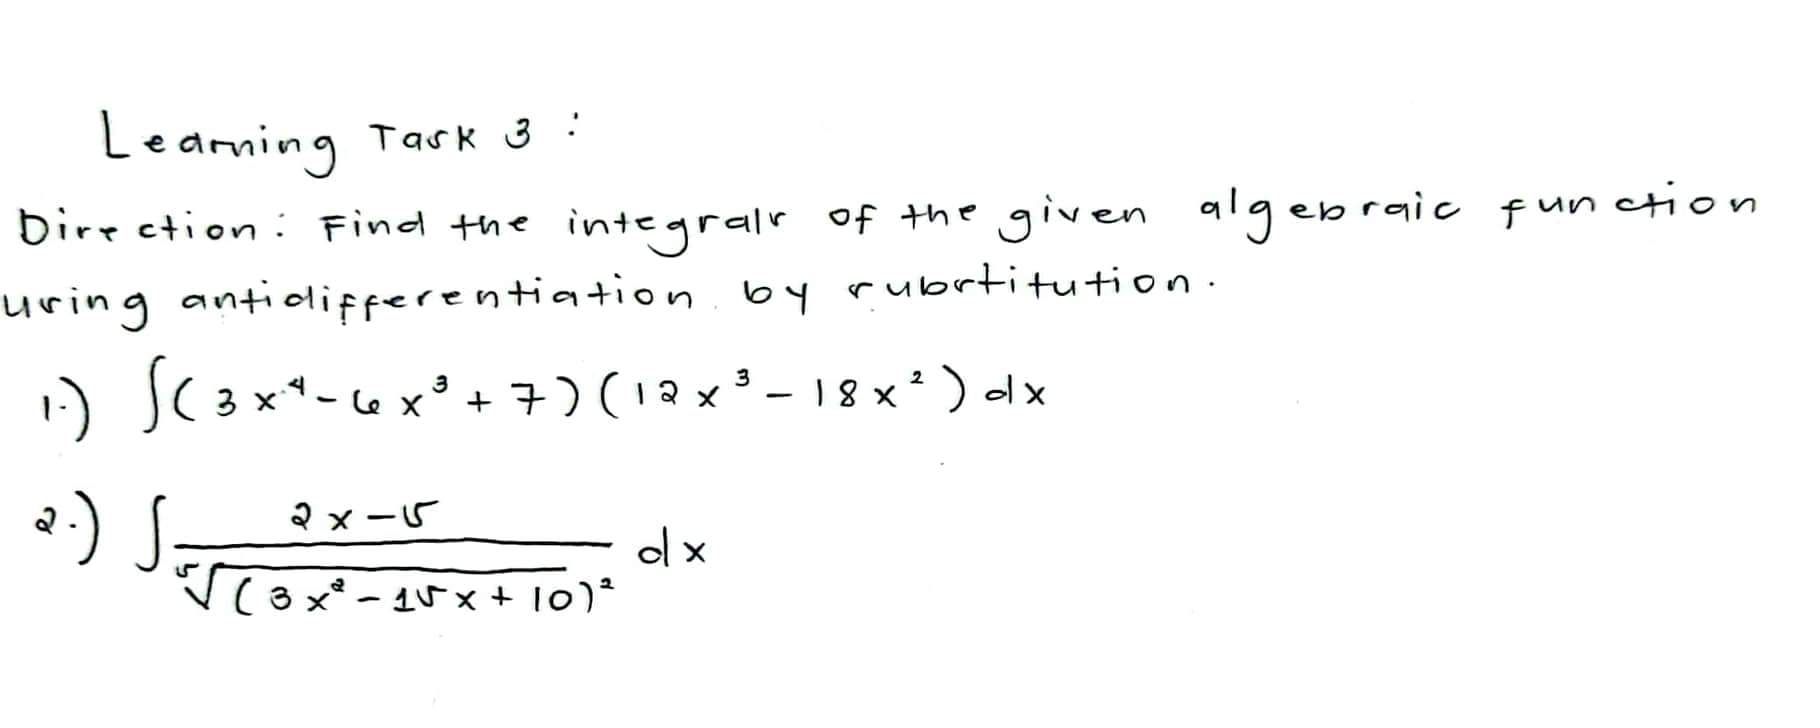 Learning Task 3 :
Direction: Find the integrals of the given algebraic function
using antidifferentiation by substitution.
1.) ∫(3x⁴-6x³+7)(12x³-18x²)dx
2.) ∫ (2x-5)/⁵√(3x²-15x+10)² dx